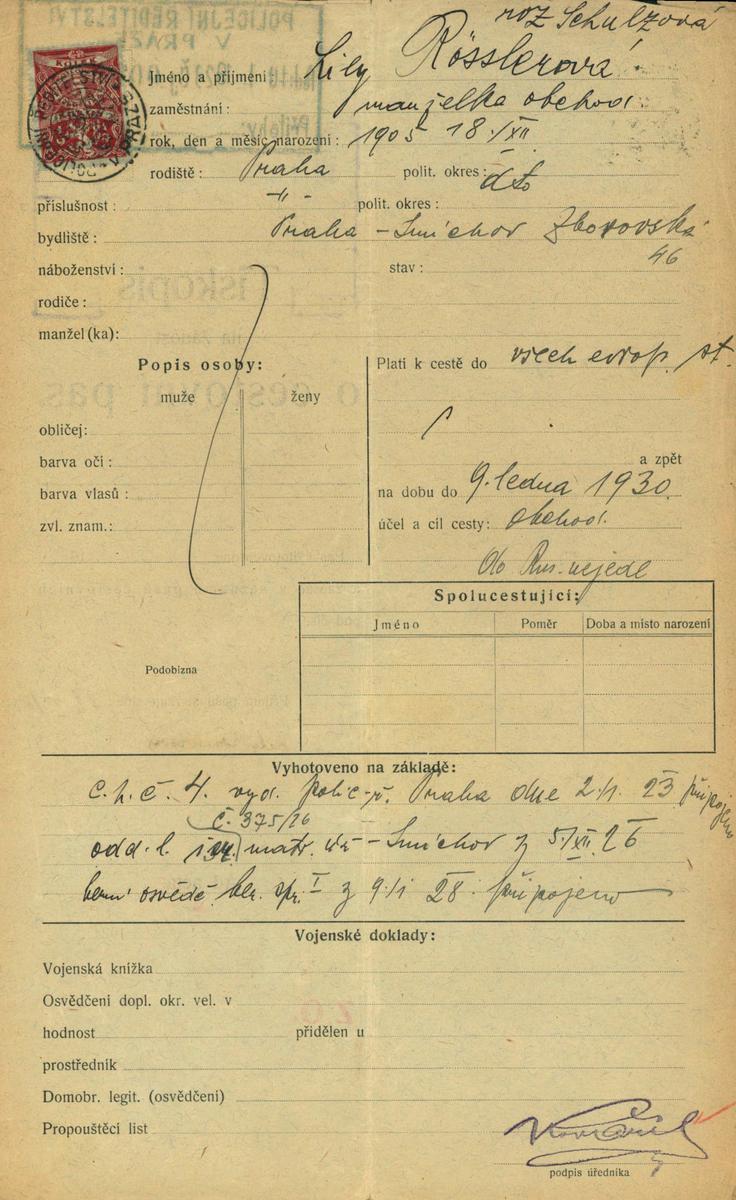 roz Schulzová
Jméno a příjmení: Lily Rösslerová
zaměstnání: manželka obchod.
rok, den a měsíc narození: 1905 18/XII
rodiště: Praha polit. okres: dto
příslušnost: -"- polit. okres:
bydliště: Praha - Smíchov Zborovská
46
náboženství: stav:
rodiče:
manžel (ka):
Popis osoby: Platí k cestě do všech evrop. st.
muže ženy
obličej:
barva očí: a zpět
barva vlasů: na dobu do 9. ledna 1930.
zvl. znam.: účel a cíl cesty: obchod.
Do Rus. nejede
Spolucestující:
Jméno Poměr Doba a místo narození
Podobizna
Vyhotoveno na základě:
c. p. č. 4. vyd. polic. ř. Praha dne 2./1. 23 připojeno
č. 375/26
odd. l. matr. - Smíchov z 5./XII. 26
berní osvědč. ber. spr. I z 9./1 28. připojeno
Vojenské doklady:
Vojenská knížka
Osvědčení dopl. okr. vel. v
hodnost přidělen u
prostředník
Domobr. legit. (osvědčení)
Propouštěcí list
podpis úředníka